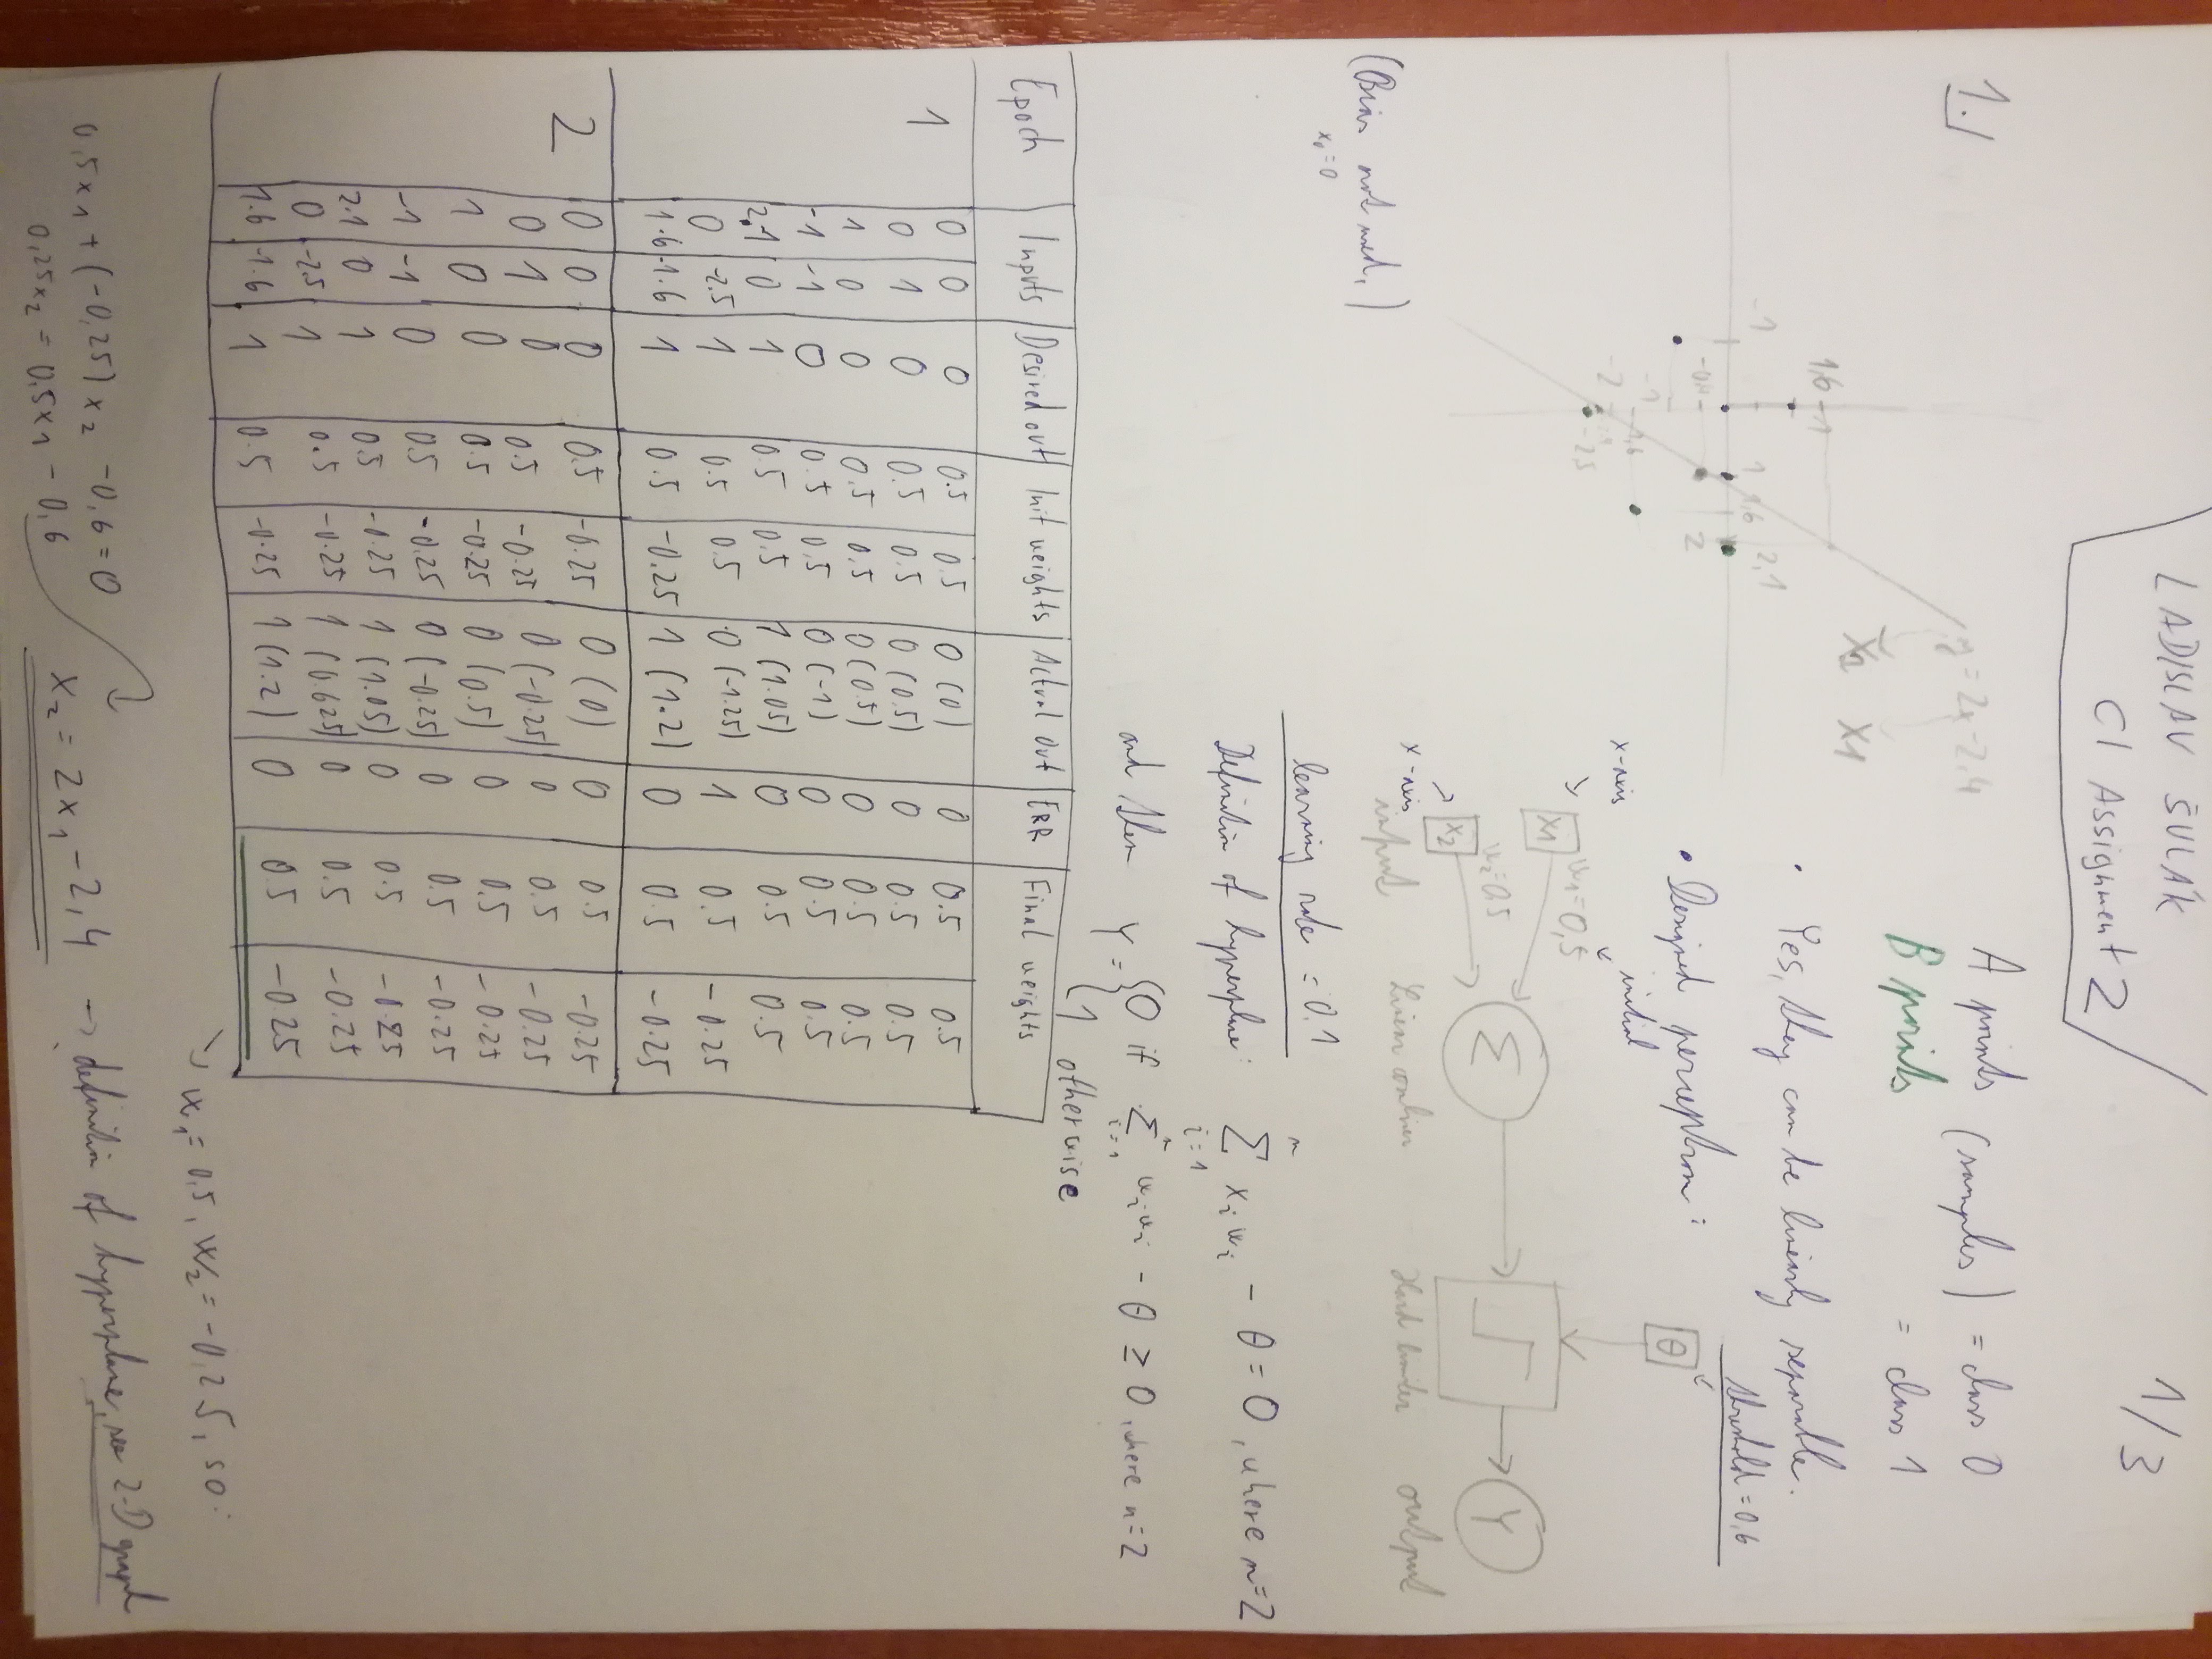 LADISLAV ŠULÁK
CI Assignment 2
1/3
1.)
y = 2x - 2,4
x2 x1
1,6 1
-1 1 1,6 2,1
-0,4 2
-1
-1,6
-2
-2,5
A points (samples) = class 0
B points = class 1
• Yes, they can be linearly separable.
threshold = 0,6
• Designed perceptron:
θ
initial
x-axis
x1 w1=0,5
w2=0,5
x2
x-axis
Σ
Y
input Linear combiner Hard limiter output
(Bias not used,)
x0=0
learning rate = 0.1
Definition of hyperplane: n Σ i=1 xi wi - θ = 0, where n=2
and then Y = { 0 if n Σ i=1 wi wi - θ ≥ 0, where n=2
1 otherwise
Epoch Inputs Desired out Init weights Actual Out ERR Final weights
1 0 0 0 0.5 0.5 0 (0) 0 0.5 0.5
0 1 0 0.5 0.5 0 (0.5) 0 0.5 0.5
1 0 0 0.5 0.5 0 (0.5) 0 0.5 0.5
-1 -1 0 0.5 0.5 0 (-1) 0 0.5 0.5
2.1 0 1 0.5 0.5 1 (1.05) 0 0.5 0.5
0 -2.5 1 0.5 0.5 0 (-1.25) 1 0.5 -0.25
1.6 -1.6 1 0.5 -0.25 1 (1.2) 0 0.5 -0.25
2 0 0 0 0.5 -0.25 0 (0) 0 0.5 -0.25
0 1 0 0.5 -0.25 0 (-0.25) 0 0.5 -0.25
1 0 0 0.5 -0.25 0 (0.5) 0 0.5 -0.25
-1 -1 0 0.5 -0.25 0 (-0.25) 0 0.5 -0.25
2.1 0 1 0.5 -0.25 1 (1.05) 0 0.5 -0.25
0 -2.5 1 0.5 -0.25 1 (0.625) 0 0.5 -0.25
1.6 -1.6 1 0.5 -0.25 1 (1.2) 0 0.5 -0.25
w1=0,5, w2=-0,25, so:
0,5x1 + (-0,25) x2 - 0,6 = 0
0,25x2 = 0,5x1 - 0,6
x2 = 2x1 - 2,4 → definition of hyperplane, see 2-D graph